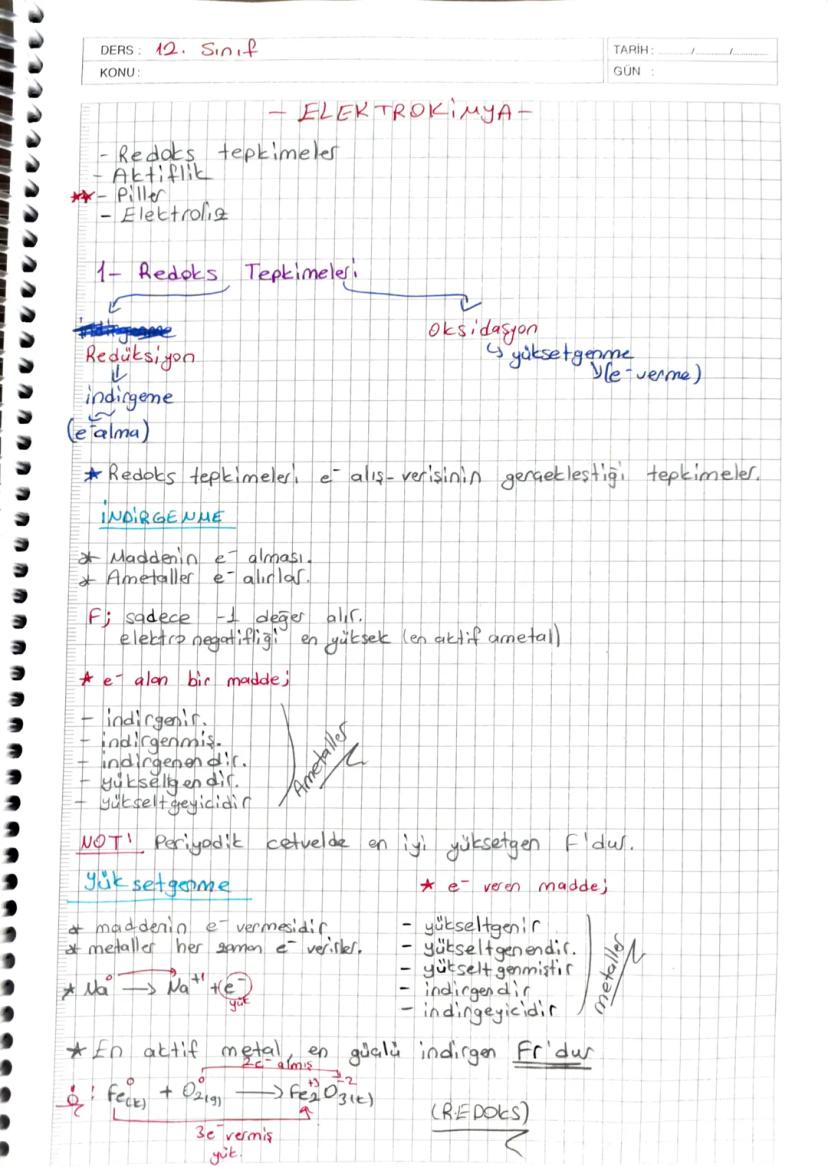 DERS : 12. Sınıf
TARİH : / /
KONU :
GÜN :
- ELEKTROKİMYA -
- Redoks tepkimeler
- Aktiflik
** - Piller
- Elektroliz
1- Redoks Tepkimeleri
Redüksiyon
indirgeme
(e⁻ alma)
Oksidasyon
↳ yüksetgenme
(e⁻ verme)
* Redoks tepkimeleri e⁻ alış-verişinin gerçekleştiği tepkimeler.
İNDİRGENME
* Maddenin e⁻ alması.
* Ametaller e⁻ alırlar.
F; sadece -1 değer alır.
elektronegatifliği en yüksek (en aktif ametal)
* e⁻ alan bir madde;
- indirgenir.
- indirgenmiş.
- indirgenendir.
- yükseltgendir.
- yükseltgeyicidir
Ametaller
NOT! Periyodik cetvelde en iyi yüksetgen F'dur.
Yüksetgenme
* maddenin e⁻ vermesidir
* metaller her zaman e⁻ verirler.
* Na⁰ → Na⁺¹ + e⁻
yük
* e⁻ veren madde;
- yükseltgenir
- yükseltgenendir.
- yükseltgenmiştir
- indirgendir
- indirgeyicidir
metaller
* En aktif metal, en güçlü indirgen Fr'dur
2e⁻ almış
Ö: Fe⁰(k) + O₂⁰(g) → Fe₂⁺³O₃⁻²(k)
3e⁻ vermiş
yük.
(REDOKS)